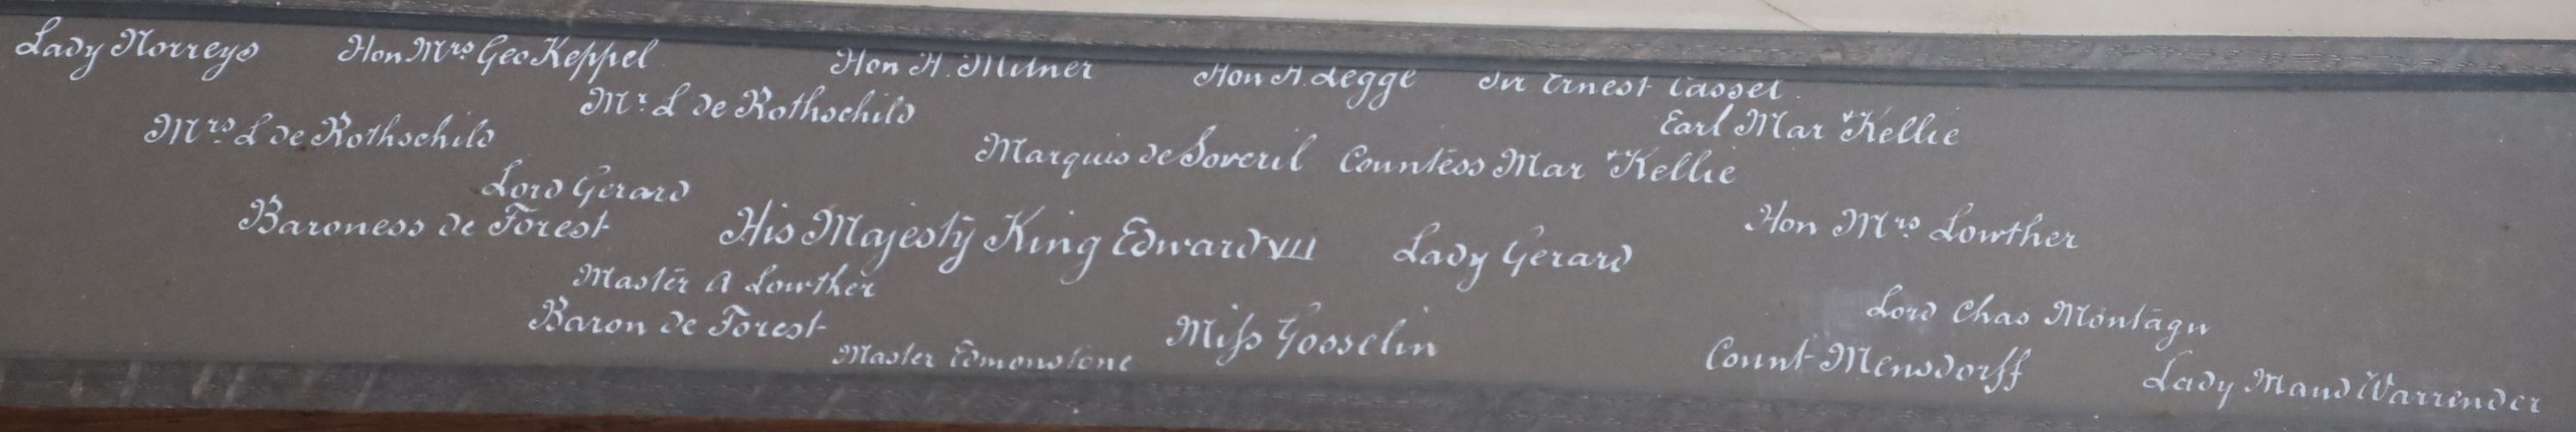 Lady Norreys Hon Mrs Geo Keppel Hon H. Milner Hon H. Legge Sir Ernest Cassel.
Mr L de Rothschild
Mrs L de Rothschild Earl Mar & Kellie
Marquis de Soveril Countess Mar & Kellie
Lord Gerard
Baroness de Forest His Majesty King Edward VII Lady Gerard Hon Mrs Lowther
Master A Lowther
Baron de Forest Miss Gosselin Lord Chas Montagu
Master Edmonstone Count Mensdorff Lady Maud Warrender